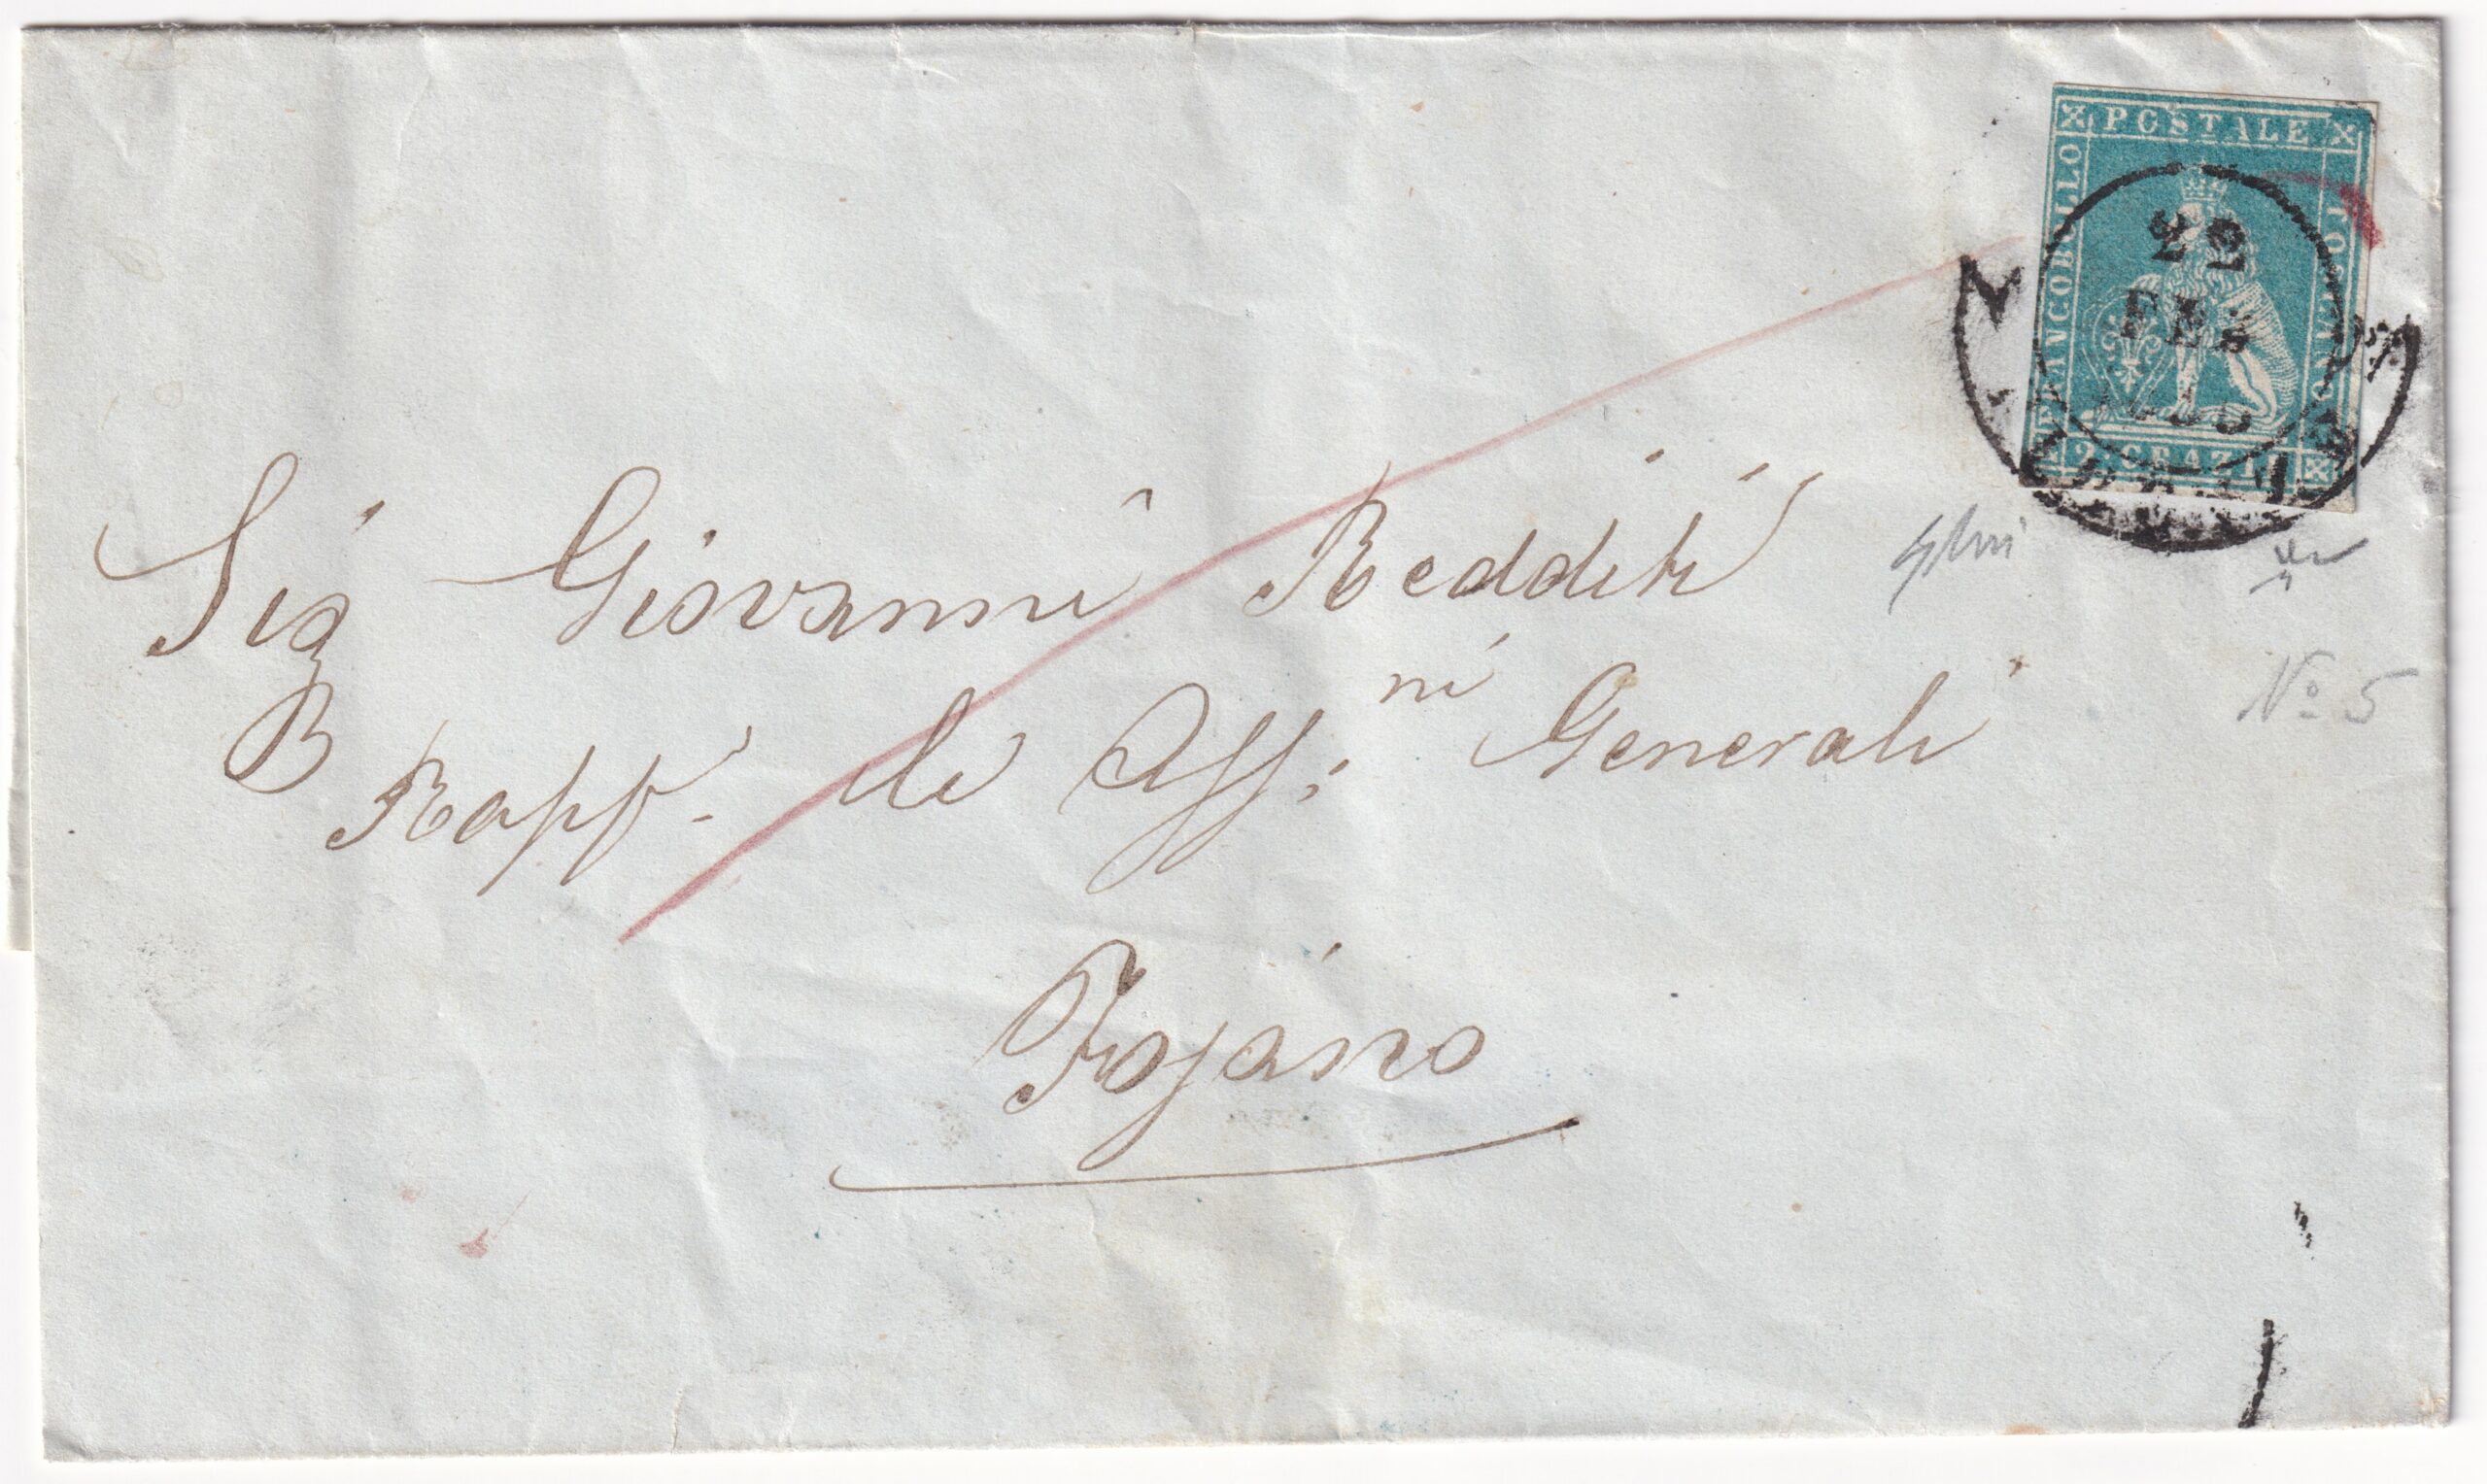 POSTALE
FRANCOBOLLO
2 CRAZIE
22
FEB
Sig Giovanni Redditi
Rapp. le Ass:ni Generali
Fojano
No 5